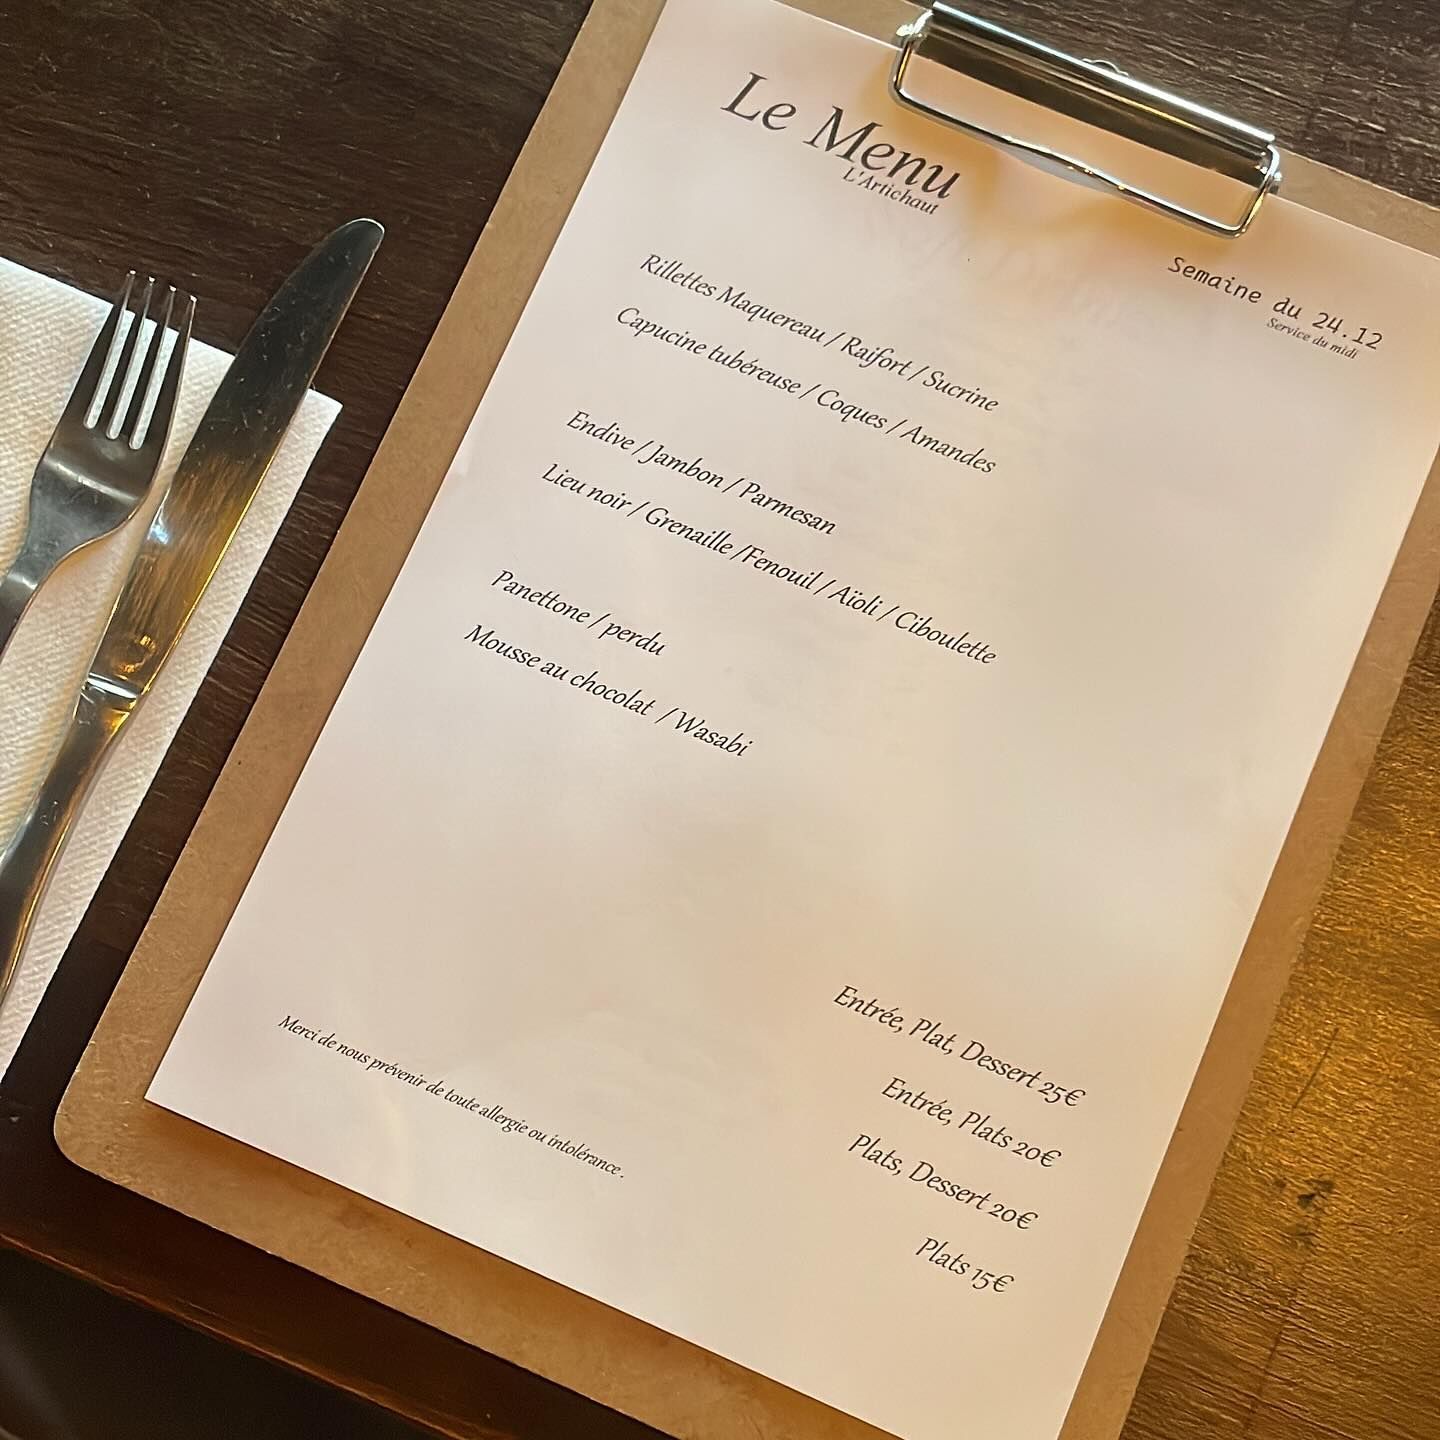 Le Menu
L'Artichaut
Semaine du 24.12
Service du midi
Rillettes Maquereau / Raifort / Sucrine
Capucine tubéreuse / Coques / Amandes
Endive / Jambon / Parmesan
Lieu noir / Grenaille /Fenouil / Aïoli / Ciboulette
Panettone / perdu
Mousse au chocolat / Wasabi
Entrée, Plat, Dessert 25€
Entrée, Plats 20€
Plats, Dessert 20€
Plats 15€
Merci de nous prévenir de toute allergie ou intolérance .